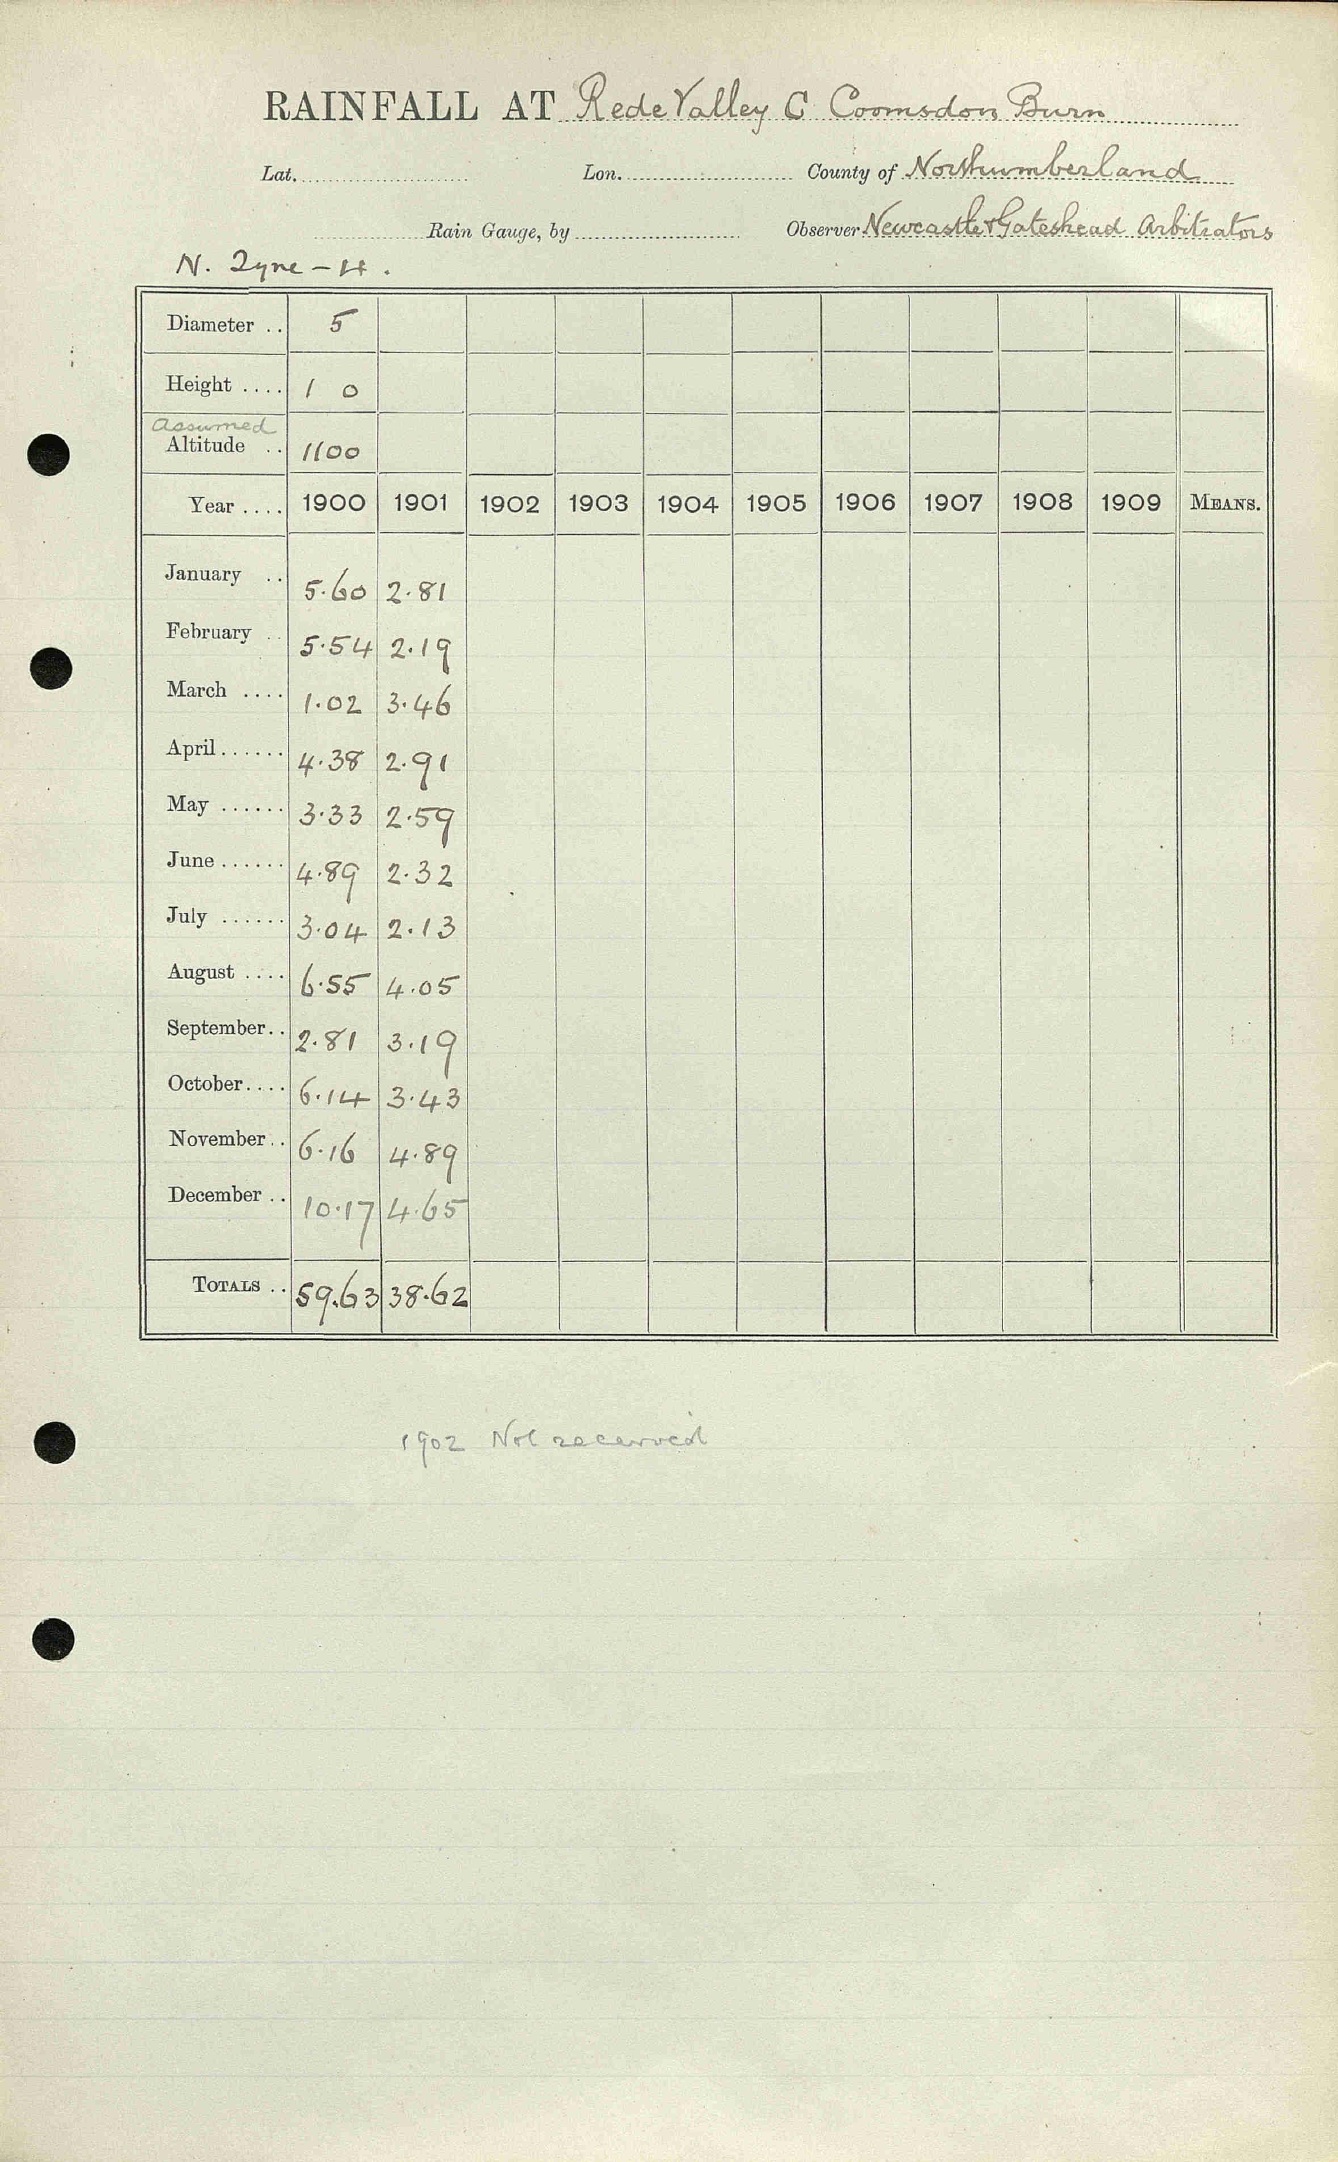 RAINFALL AT Rede Valley C Coomsdon Burn
Lat. Lon. County of Northumberland
Rain Gauge, by Observer Newcastle & Gateshead Arbitrators
N. Tyne – H.
Diameter .. 5
Height .... 1 0
assumed
Altitude .. 1100
Year .... 1900 1901 1902 1903 1904 1905 1906 1907 1908 1909 MEANS.
January .. 5.60 2.81
February .. 5.54 2.19
March .... 1.02 3.46
April ...... 4.38 2.91
May ...... 3.33 2.59
June ...... 4.89 2.32
July ...... 3.04 2.13
August .... 6.55 4.05
September .. 2.81 3.19
October .... 6.14 3.43
November .. 6.16 4.89
December .. 10.17 4.65
TOTALS .. 59.63 38.62
1902 Not received